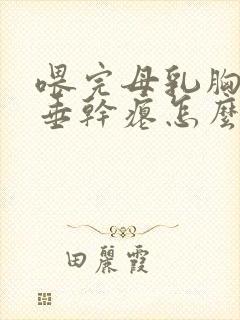 喂完母乳胸
垂幹癟怎麼
田麗霞